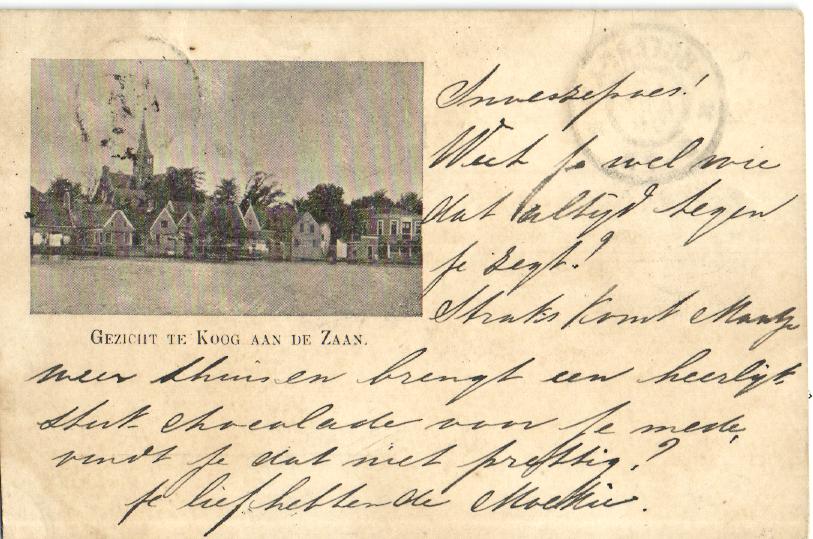 Snoezepoes!
Weet je wel wie
dat altijd tegen
je zegt?
GEZICHT TE KOOG AAN DE ZAAN.
Straks komt Maatje
weer thuis en brengt een heerlijk
stuk chocolade voor je mede,
vindt je dat niet prettig?
je liefhebbende Moekie.